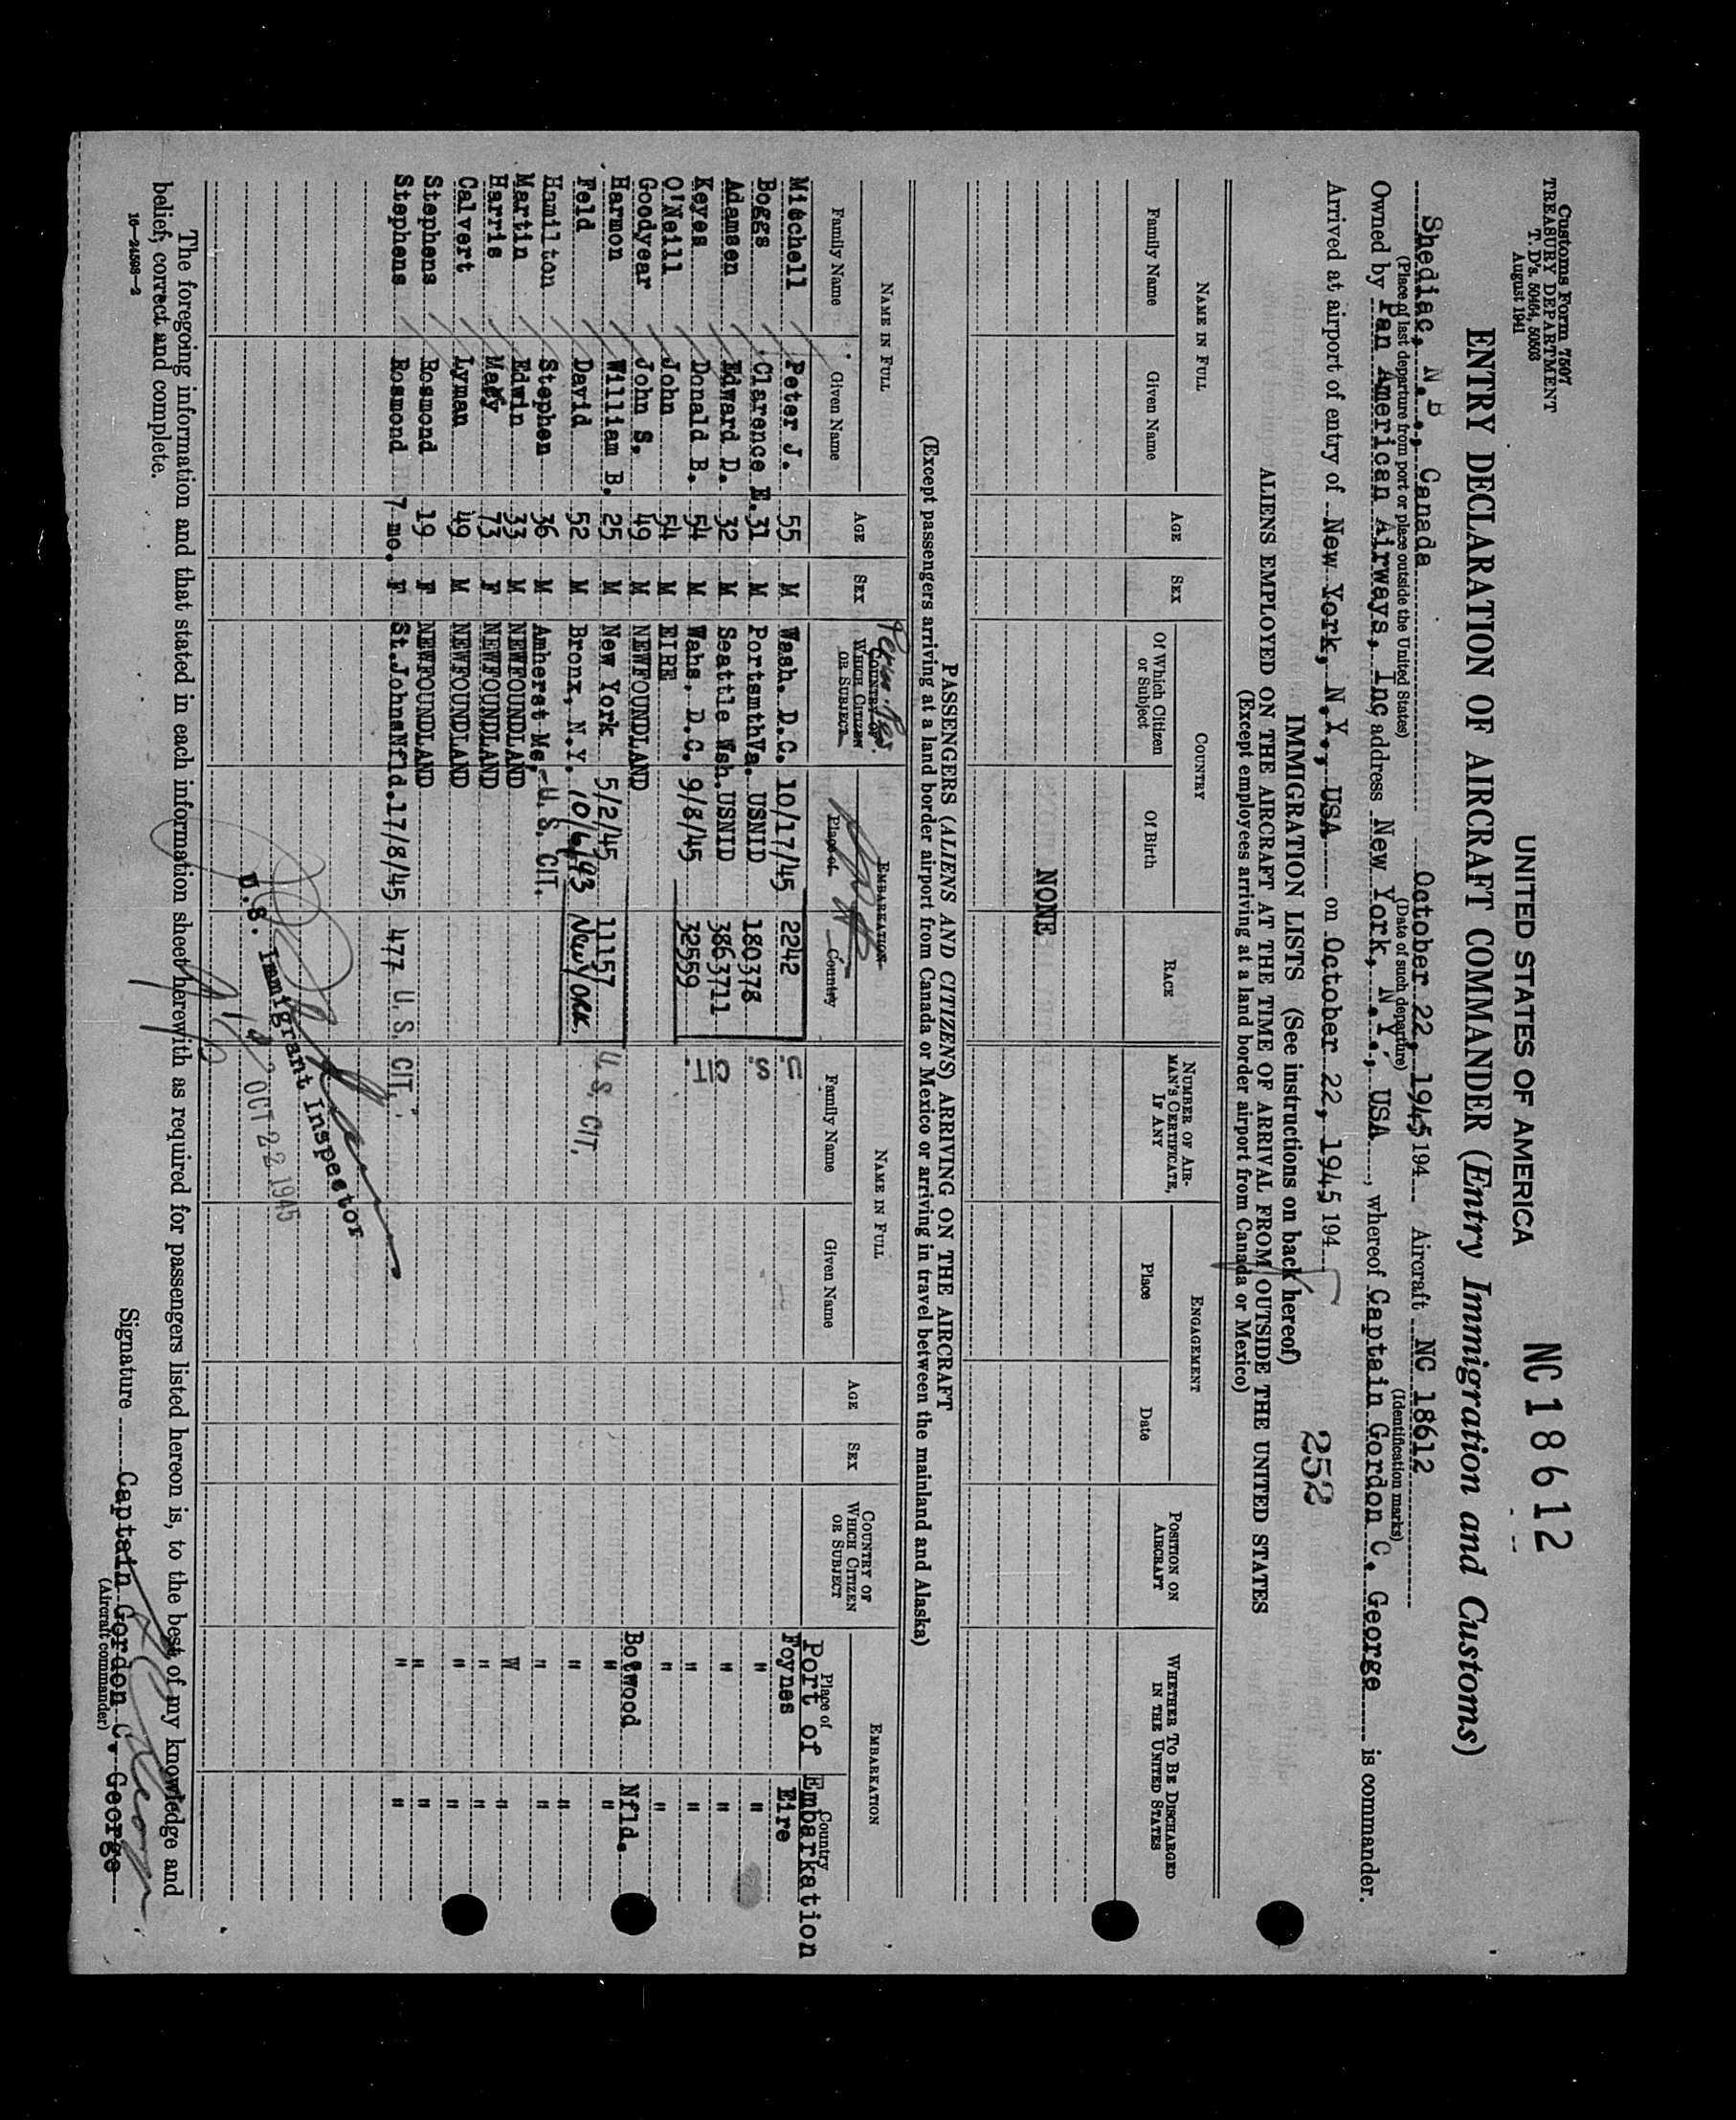 Customs Form 7507
TREASURY DEPARTMENT
T. D's. 50464, 50503
August 1941
UNITED STATES OF AMERICA
NC18612
ENTRY DECLARATION OF AIRCRAFT COMMANDER (Entry Immigration and Customs)
Shediac, N.B., Canada October 22, 1945 194 Aircraft NC 18612
(Place of last departure from port or place outside the United States) (Date of such departure) (Identification marks)
Owned by Pan American Airways, Inc address New York, N.Y., USA, whereof Captain Gordon C. George is commander.
Arrived at airport of entry of New York, N.Y., USA on October 22, 1945 194
252
IMMIGRATION LISTS (See instructions on back hereof)
ALIENS EMPLOYED ON THE AIRCRAFT AT THE TIME OF ARRIVAL FROM OUTSIDE THE UNITED STATES
(Except employees arriving at a land border airport from Canada or Mexico)
NAME IN FULL COUNTRY ENGAGEMENT
Family Name Given Name AGE SEX Of Which Citizen or Subject Of Birth RACE NUMBER OF AIRMAN'S CERTIFICATE, IF ANY Place Date POSITION ON AIRCRAFT WHETHER TO BE DISCHARGED IN THE UNITED STATES
NONE
PASSENGERS (ALIENS AND CITIZENS) ARRIVING ON THE AIRCRAFT
(Except passengers arriving at a land border airport from Canada or Mexico or arriving in travel between the mainland and Alaska)
NAME IN FULL AGE SEX COUNTRY OF WHICH CITIZEN OR SUBJECT EMBARKATION NAME IN FULL AGE SEX COUNTRY OF WHICH CITIZEN OR SUBJECT EMBARKATION
Family Name Given Name Perm. Res. Place of Country Family Name Given Name Place of Country
Port of Embarkation
Mitchell Peter J. 55 M Wash. D.C. 10/17/45 2242 Foynes Eire
Boggs Clarence E. 31 M PortsmthVa. USNID 180378 " "
Adamsen Edward D. 32 M Seattle Wsh. USNID 3863711 " "
Keyes Donald B. 54 M Wahs. D.C. 9/8/45 32559 " "
O'Neill John 54 M EIRE " "
Goodyear John S. 49 M NEWFOUNDLAND Botwood Nfld.
Harmon William B. 25 M New York 5/2/45 11157 U.S. CIT. " "
Feld David 52 M Bronx, N.Y. 10/6/93 New York. " "
Hamilton Stephen 36 M Amherst Me. U. S. CIT. " "
Martin Edwin 33 M NEWFOUNDLAND W "
Harris Mary 73 F NEWFOUNDLAND " "
Calvert Lyman 49 M NEWFOUNDLAND " "
Stephens Rosmond 19 F NEWFOUNDLAND " "
Stephens Rosmond 7 mo. F St.JohnsNfld.17/8/45 477 U. S. CIT. " "
U.S. Immigrant Inspector
OCT 22 1945
The foregoing information and that stated in each information sheet herewith as required for passengers listed hereon is, to the best of my knowledge and
belief, correct and complete.
Signature Captain Gordon C. George
(Aircraft commander)
16—24598-2